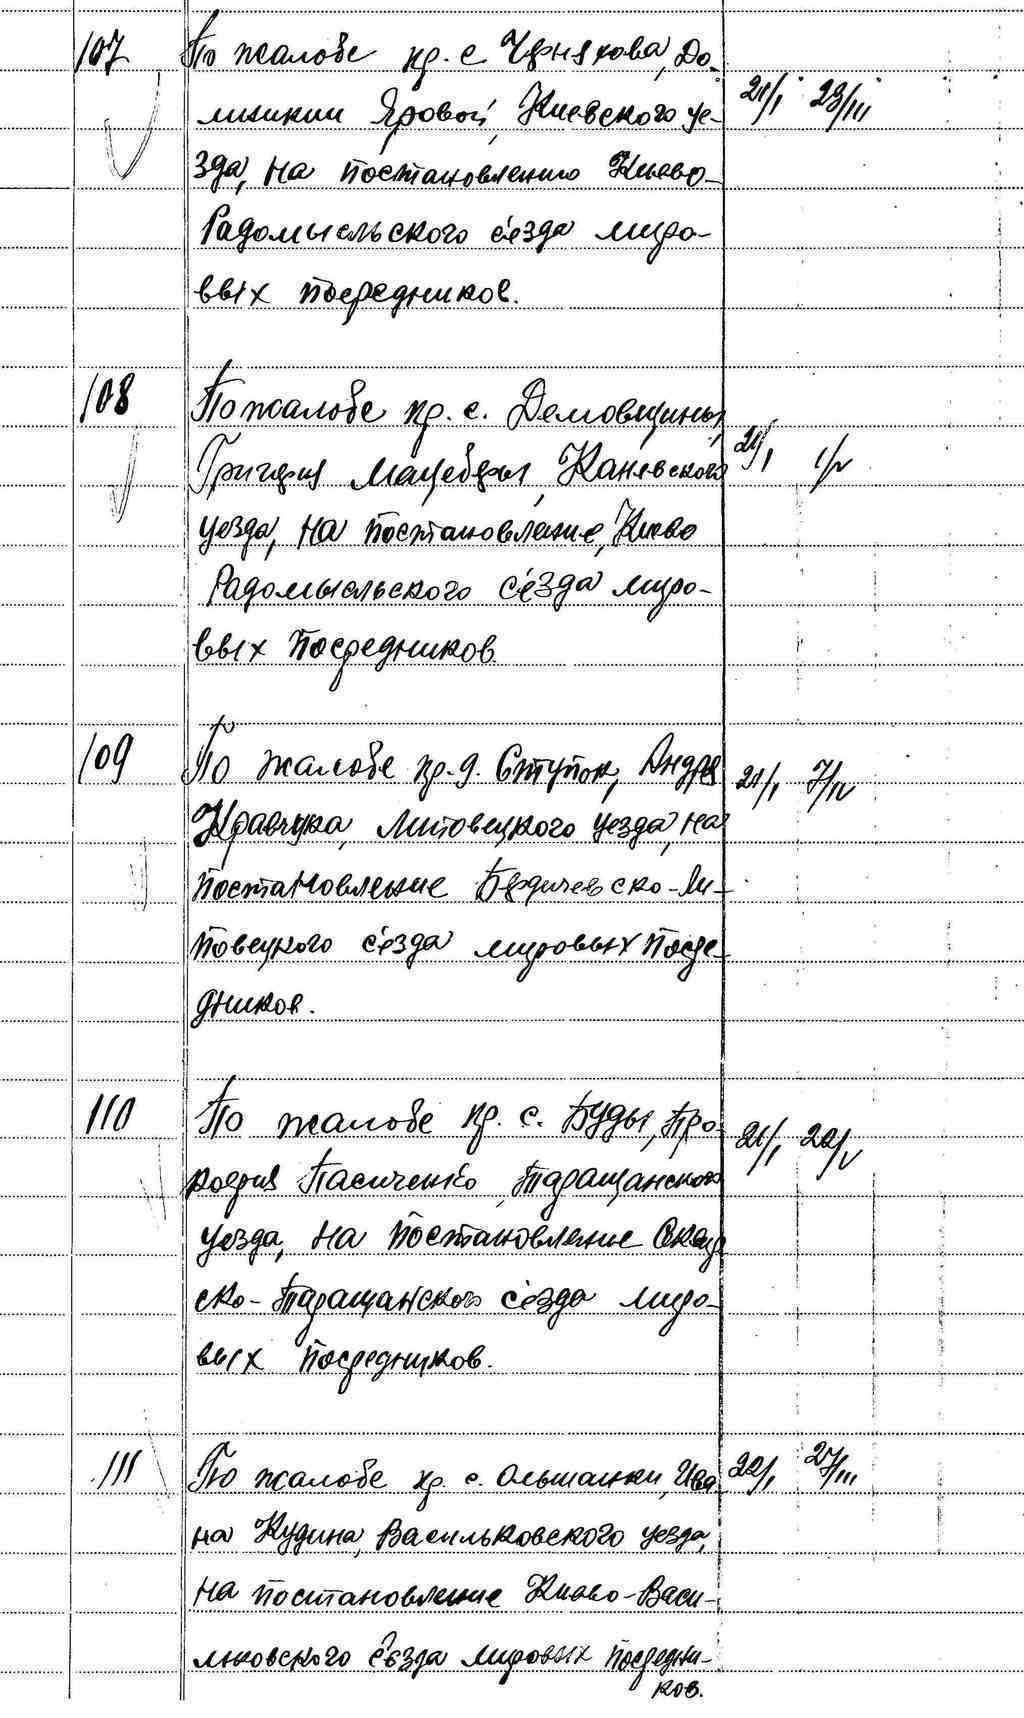 107 По жалобе кр. с. Черняхова, До-
миникии Яровой, Киевского уе- 21/I 23/III
зда, на постановлению Киево-
Радомысльского с'езда миро-
вых посредников.
108 По жалобе кр. с. Демовщины,
Григория Мацебуры, Каневского 21/I 1/IV
уезда, на постановление, Киево
Радомысльского с'езда миро-
вых посредников.
109 По жалобе кр. д. Ступок, Андрея 21/I 7/IV
Кравчука, Липовецкого уезда, на
постановление Бердичевско-Ли-
повецкого с'езда мировых посре-
дников.
110 По жалобе кр. с. Буды, Про- 21/I 22/V
кофия Пасиченко, Таращанского
уезда, на постановление Сквир
ско-Таращанского с'езда миро-
вых посредников.
111 По жалобе кр. с. Ольшанки, Ива- 22/I 27/III
на Кудина, Васильковского уезда,
на постановление Киево-Васи-
льковского с'езда мировых посредни-
ков.